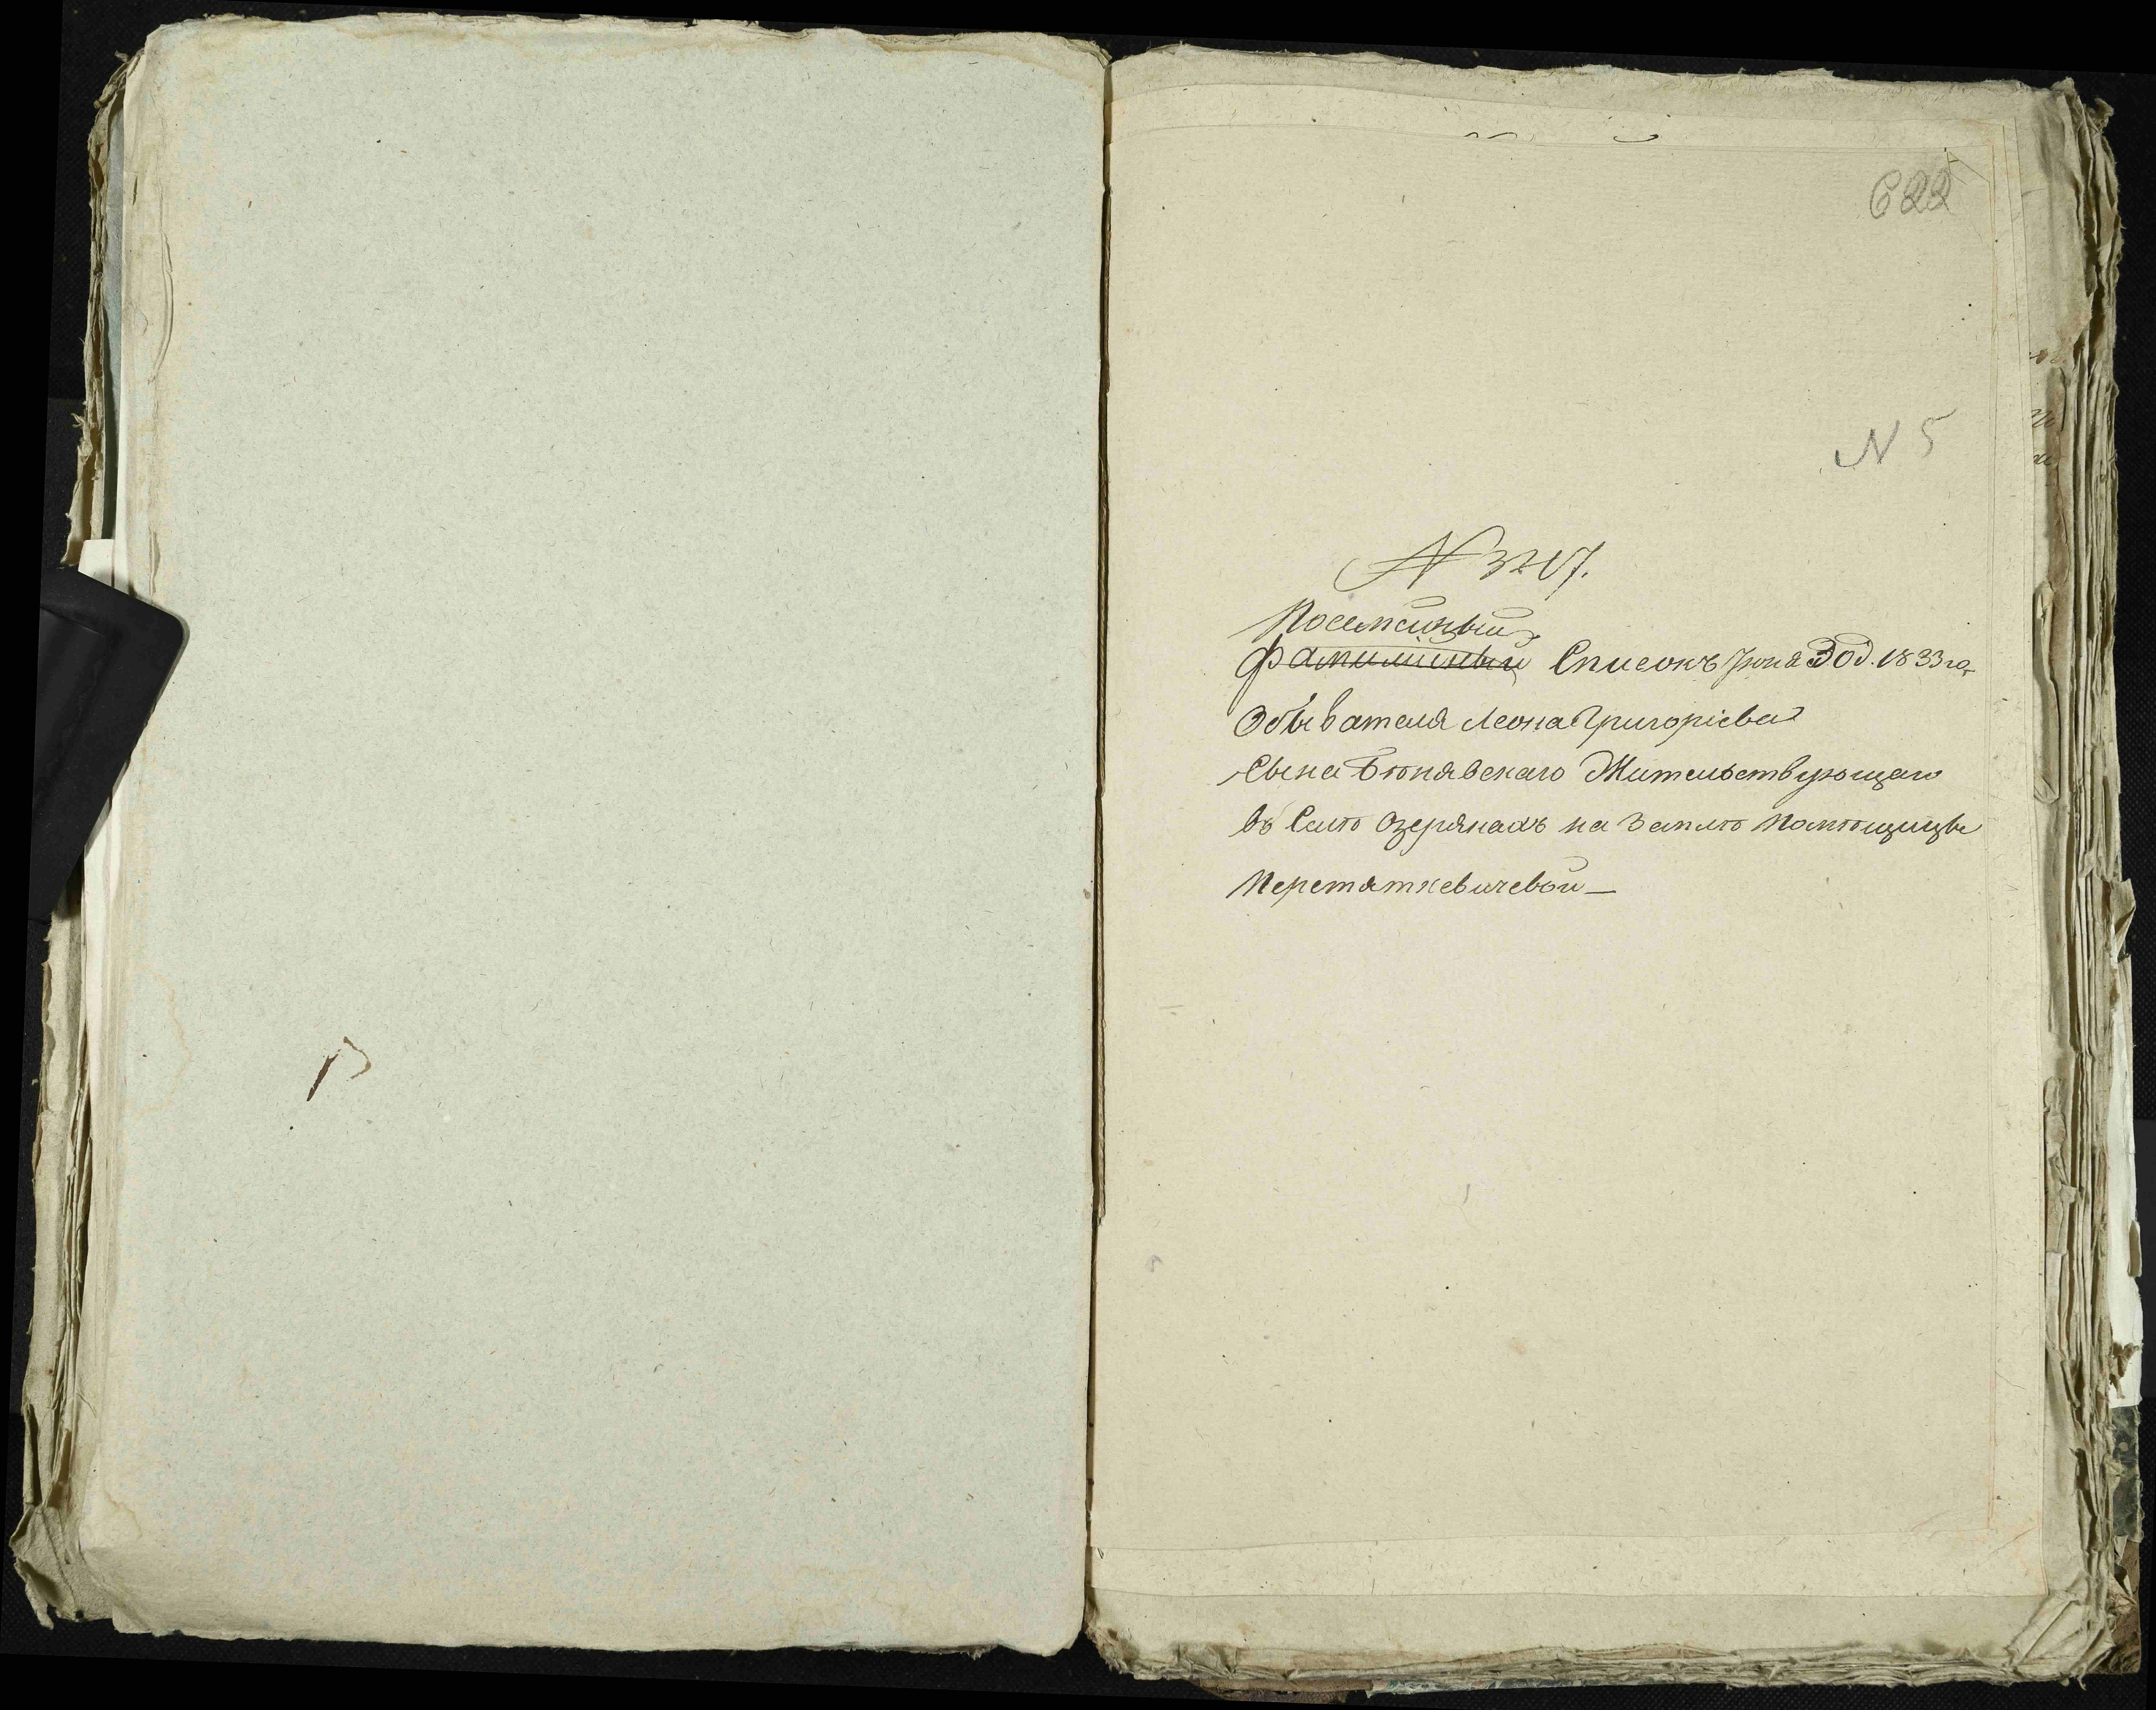 622
N 5
N 3217.
Посемейный
Фамилийный Списокъ Іюня 30д. 1833 го
Обывателя Леона Григоріева
Сына Бѣнявскаго Жительствующаго
въ Селѣ Озерянахъ на Землѣ Помѣщицы
Перетяткевичевой —